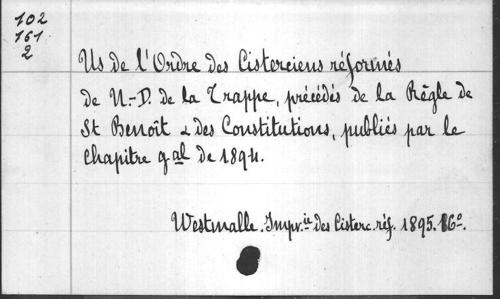 102
161
2
Us de l'Ordre des Cisterciens réformés
de N.-D. de la Trappe, précédés de la Règle de
St Benoît & des Constitutions, publiés par le
Chapitre gal de 1894.
Westmalle. Impr.ie des Cisterc. réf. 1895. 16°.